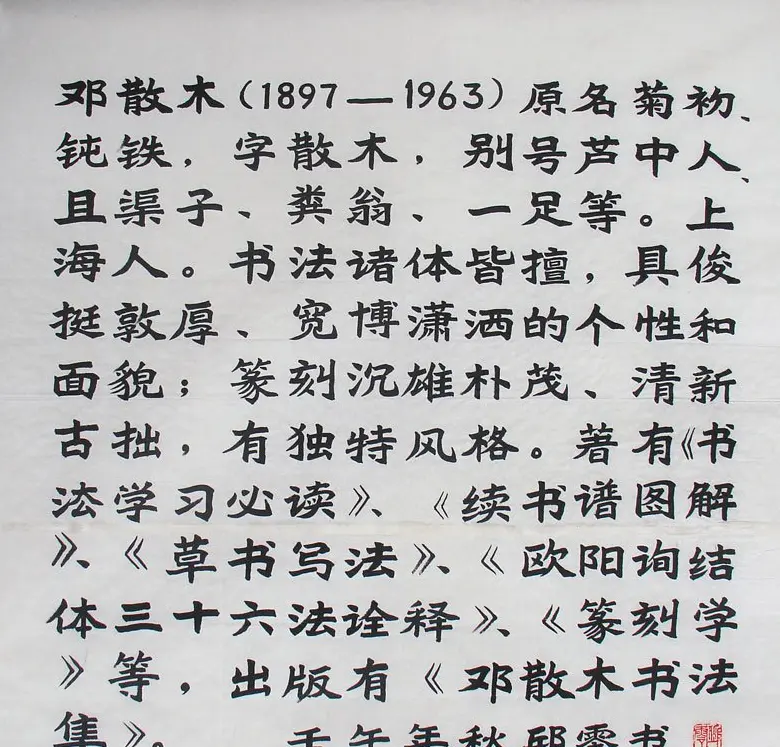 邓散木(1897—1963)原名菊初、
钝铁，字散木，别号芦中人、
且渠子、粪翁、一足等。上
海人。书法诸体皆擅，具俊
挺敦厚、宽博潇洒的个性和
面貌；篆刻沉雄朴茂、清新
古拙，有独特风格。著有《书
法学习必读》、《续书谱图解
》、《草书写法》、《欧阳询结
体三十六法诠释》、《篆刻学
》等，出版有《邓散木书法
集》。 壬午年秋邱零书